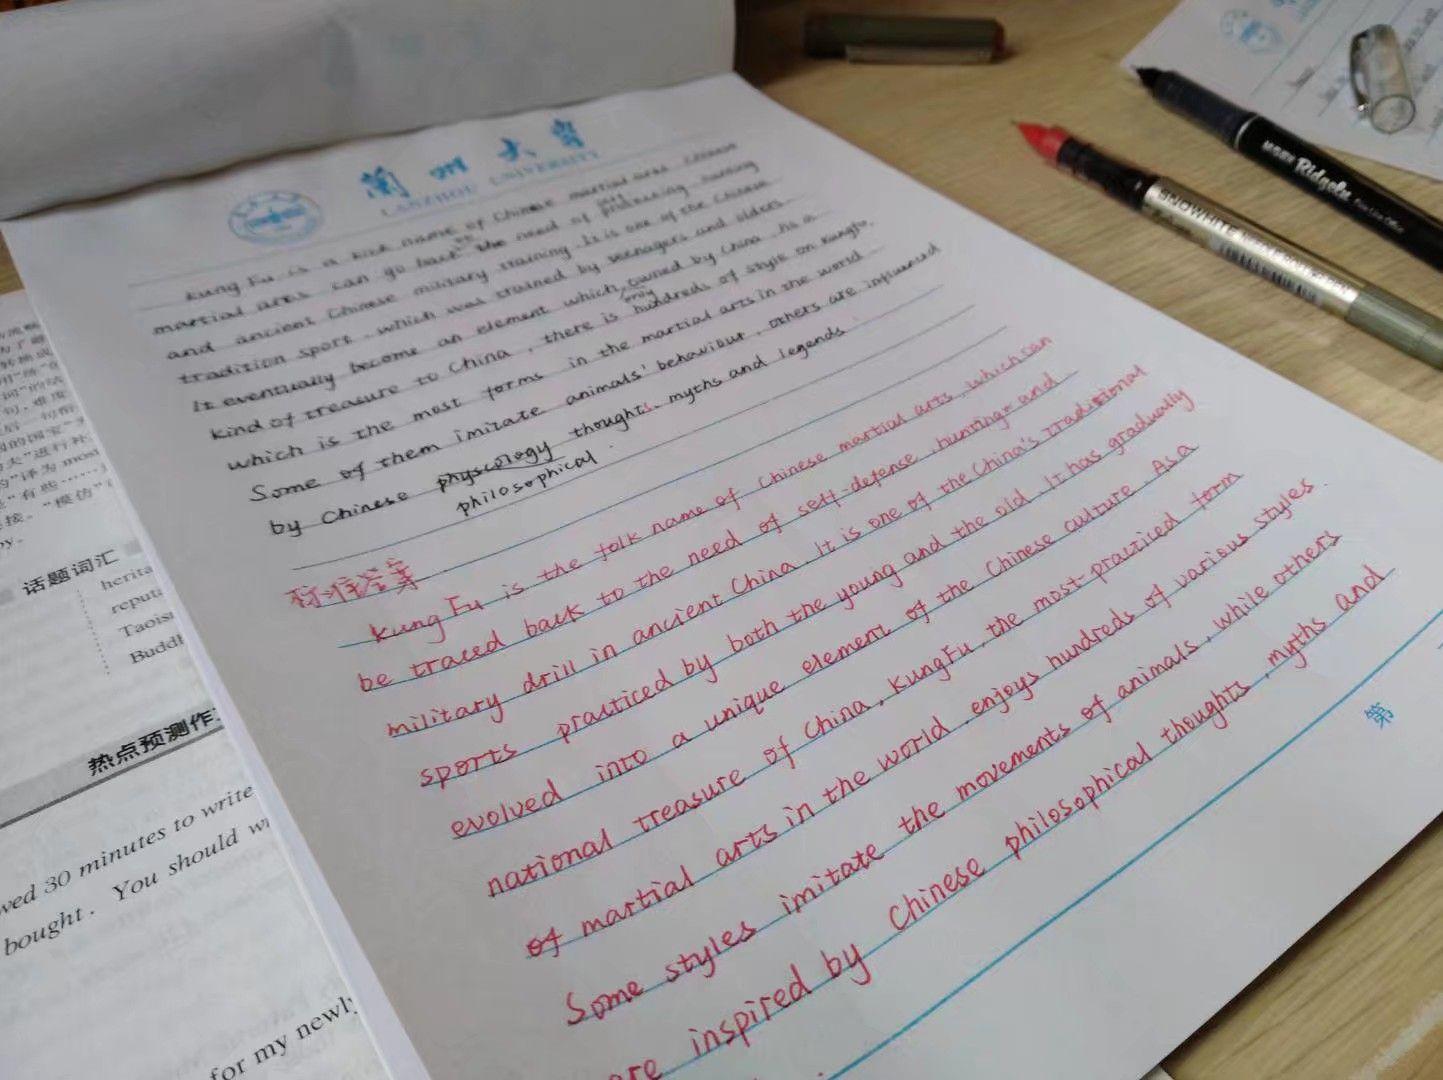 兰州大学
LANZHOU UNIVERSITY
Kung Fu is a kind name of Chinese martial arts. Chinese
martial arts can go back to the need of protecting, hunting
and ancient Chinese military training. It is one of the Chinese
tradition sport, which was trained by teenagers and olders.
It eventually become an element which owned by China. As a
only
kind of treasure to China, there is hundreds of style on Kungfu,
which is the most forms in the martial arts in the world.
Some of them imitate animals' behaviour, others are influenced
by Chinese physcology thoughts, myths and legends.
philosophical
标准答案
Kung Fu is the folk name of Chinese martial arts, which can
be traced back to the need of self-defense, hunting and
military drill in ancient China. It is one of the China's traditional
sports practiced by both the young and the old. It has gradually
evolved into a unique element of the Chinese culture. As a
national treasure of China, KungFu, the most practiced form
of martial arts in the world, enjoys hundreds of various styles.
Some styles imitate the movements of animals, while others
are inspired by Chinese philosophical thoughts, myths and
第
话题词汇
herita
reputa
Taois
Buddh
热点预测作
wed 30 minutes to write
bought. You should w
for my newly
SNOWHITE
Ridgele